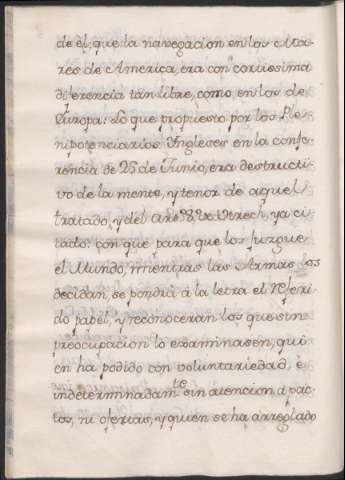 de él, que la navegacion en los Ma-
res de America, era con cortissima
diferencia tan libre, como en los de
Europa: Lo que propuesto por los Ple-
nipotenciarios Ingleses en la confe-
rencia de 25 de Junio, era destructi-
vo de la mente, y tenor de aquel
tratado, y del Art.º 8.º de Utrech, ya ci-
tado: con que para que los juzgue
el Mundo, mientras las Armas los
decidan, se pondrá á la letra el referi-
do papel, y reconoceran los que sin
preocupacion lo examinasen, qui-
en ha podido con voluntariedad, é
indeterminadam.te sin atencion á pac-
tos, ni ofertas, y quien se ha arreglado